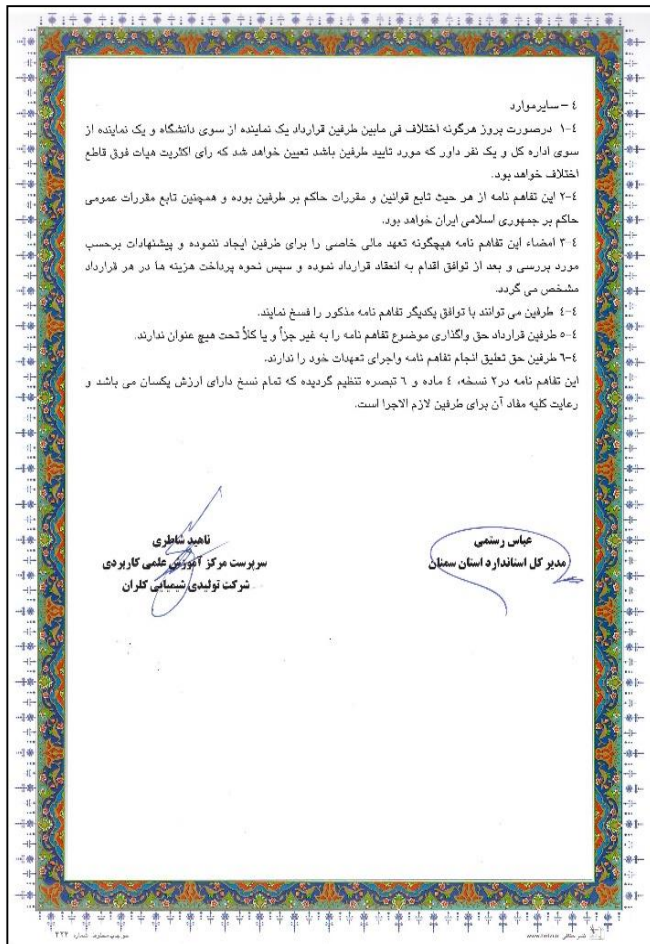 ٤ – سایرموارد
٤-١ درصورت بروز هرگونه اختلاف فی مابین طرفین قرارداد یک نماینده از سوی دانشگاه و یک نماینده از
سوی اداره کل و یک نفر داور که مورد تایید طرفین باشد تعیین خواهد شد که رای اکثریت هیات فوق قاطع
اختلاف خواهد بود.
٤-٢ این تفاهم نامه از هر حیث تابع قوانین و مقررات حاکم بر طرفین بوده و همچنین تابع مقررات عمومی
حاکم بر جمهوری اسلامی ایران خواهد بود.
٤-٣ امضاء این تفاهم نامه هیچگونه تعهد مالی خاصی را برای طرفین ایجاد ننموده و پیشنهادات برحسب
مورد بررسی و بعد از توافق اقدام به انعقاد قرارداد نموده و سپس نحوه پرداخت هزینه ها در هر قرارداد
مشخص می گردد.
٤-٤ طرفین می توانند با توافق یکدیگر تفاهم نامه مذکور را فسخ نمایند.
٤-٥ طرفین قرارداد حق واگذاری موضوع تفاهم نامه را به غیر جزاً و یا کلاً تحت هیچ عنوان ندارند.
٤-٦ طرفین حق تعلیق انجام تفاهم نامه واجرای تعهدات خود را ندارند.
این تفاهم نامه در٢ نسخه، ٤ ماده و ٦ تبصره تنظیم گردیده که تمام نسخ دارای ارزش یکسان می باشد و
رعایت کلیه مفاد آن برای طرفین لازم الاجرا است.
عباس رستمی
مدیر کل استاندارد استان سمنان
ناهید شاطری
سرپرست مرکز آموزش علمی کاربردی
شرکت تولیدی شیمیایی کلران